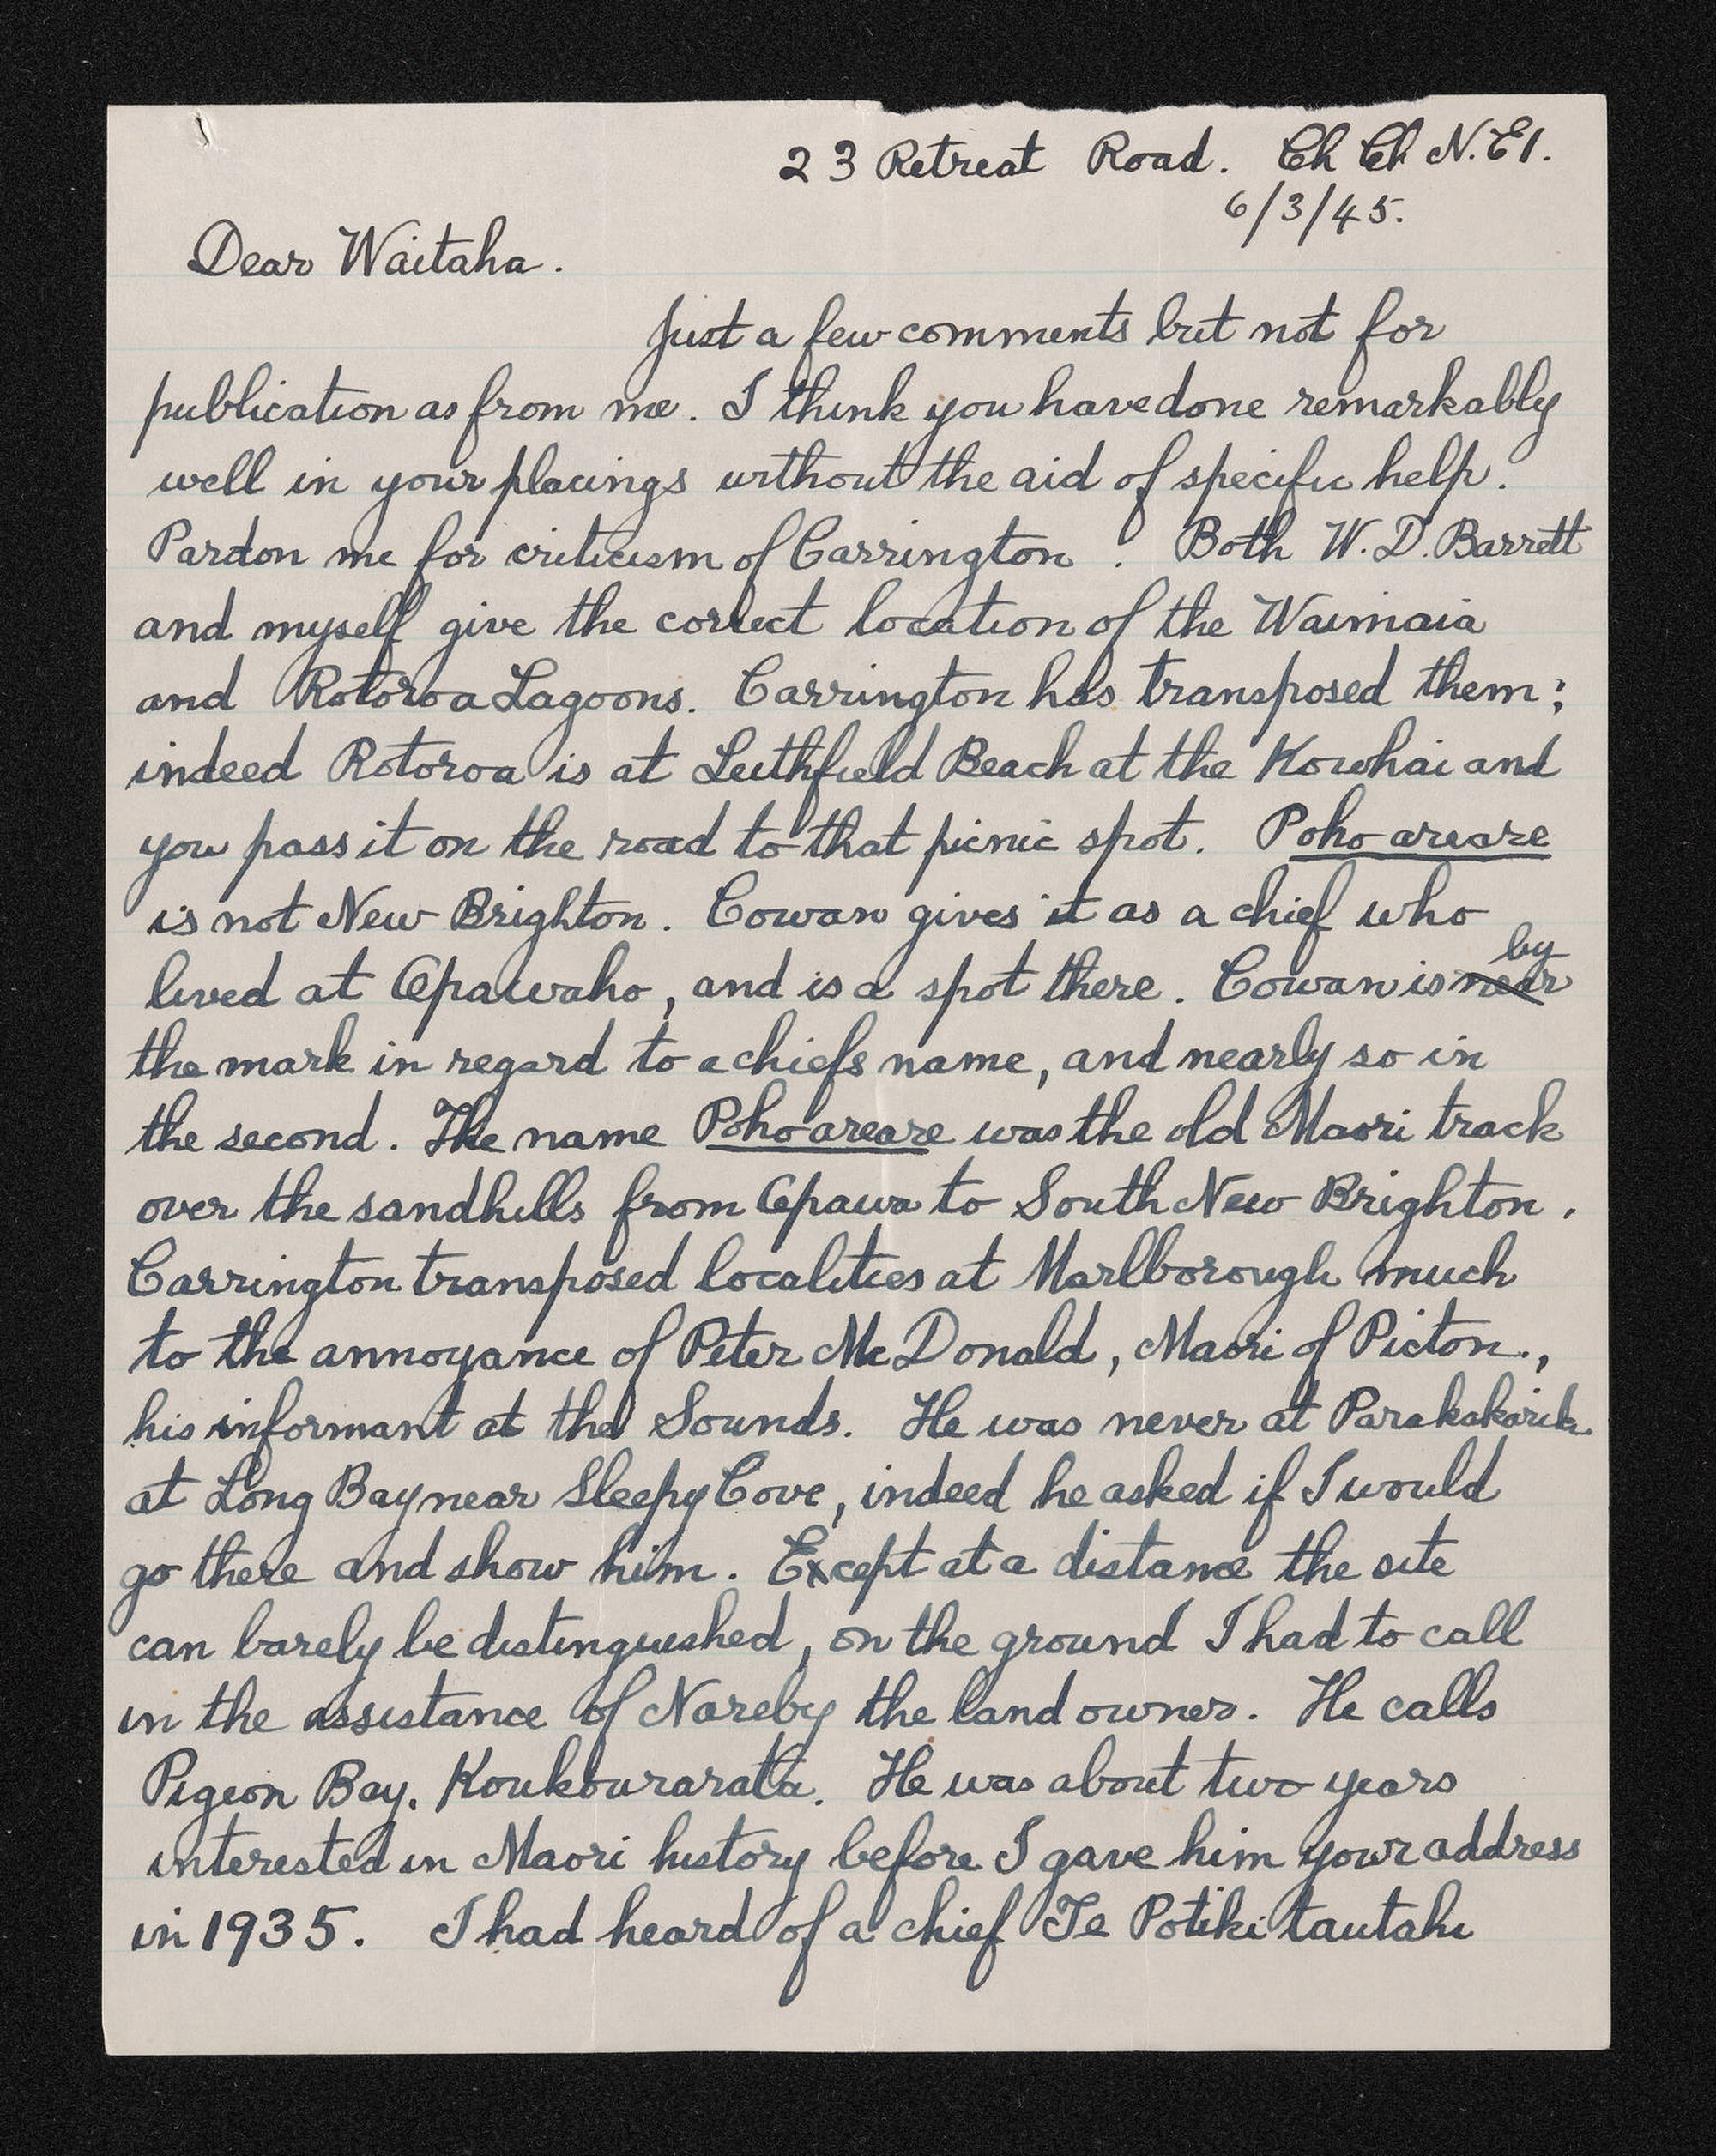 23 Retreat Road. Ch Ch N.E1.
6/3/45.
Dear Waitaha.
Just a few comments but not for
publication as from me. I think you have done remarkably
well in your placings without the aid of specific help.
Pardon me for criticism of Carrington. Both W. D. Barrett
and myself give the correct location of the Waimaia
and Rotoroa Lagoons. Carrington has transposed them;
indeed Rotoroa is at Leithfield Beach at the Kowhai and
you pass it on the road to that picnic spot. Poho areare
is not New Brighton. Cowan gives it as a chief who
lived at Opawaho, and is a spot there. Cowan is near by
the mark in regard to a chiefs name, and nearly so in
the second. The name Pohoareare was the old Maori track
over the sandhills from Opawa to South New Brighton.
Carrington transposed localities at Marlborough much
to the annoyance of Peter McDonald, Maori of Picton.,
his informant at the Sounds. He was never at Parakakariki
at Long Bay near Sleepy Cove, indeed he asked if I would
go there and show him. Except at a distance the site
can barely be distinguished, on the ground I had to call
in the assistance of Nareby the land owner. He calls
Pigeon Bay, Koukourarata. He was about two years
interested in Maori history before I gave him your address
in 1935. I had heard of a chief Te Potiki tautahi